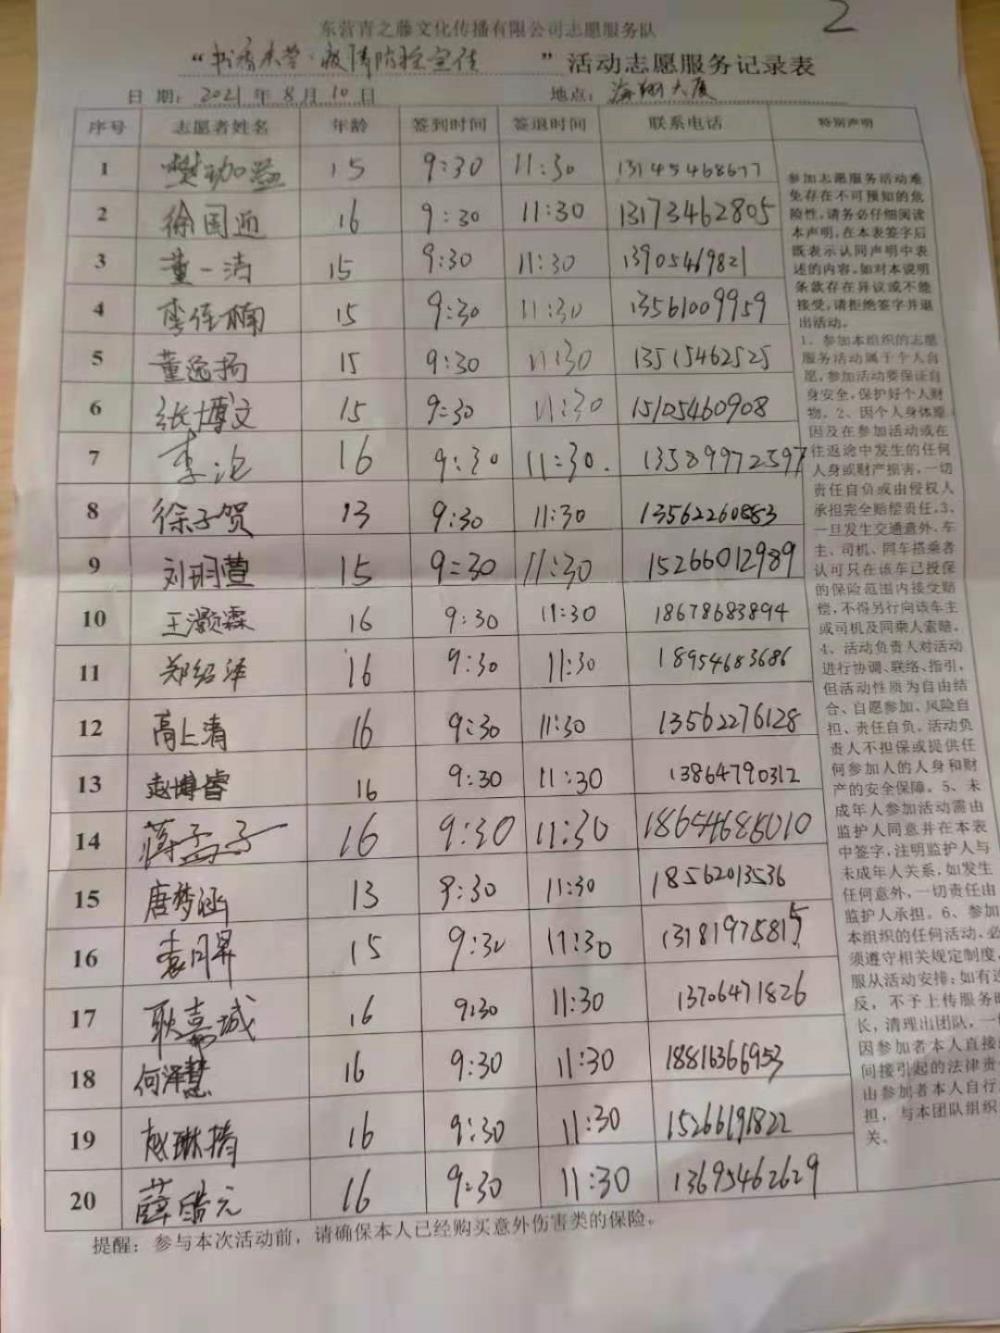 2
东营青之藤文化传播有限公司志愿服务队
“书香东营·疫情防控宣传”活动志愿服务记录表
日期：2021年8月10日 地点：海翔大厦
序号 志愿者姓名 年龄 签到时间 签退时间 联系电话 特别声明
1 樊珈益 15 9:30 11:30 13145468677
2 徐国通 16 9:30 11:30 13173462805
3 董一洁 15 9:30 11:30 13905469821
4 李佳楠 15 9:30 11:30 13561009959
5 董逸扬 15 9:30 11:30 13515462525
6 张博文 15 9:30 11:30 15105460908
7 李沦 16 9:30 11:30. 13589972597
8 徐子贺 13 9:30 11:30 13562260883
9 刘羽萱 15 9:30 11:30 15266012989
10 王灏霖 16 9:30 11:30 18678683894
11 郑绍泽 16 9:30 11:30 18954683686
12 高上清 16 9:30 11:30 13562276128
13 赵博睿 16 9:30 11:30 13864790312
14 蒋孟子 16 9:30 11:30
15 唐梦涵 13 9:30 11:30 18562013536
16 袁月昇 15 9:30 11:30 13181975815
17 耿嘉城 16 9:30 11:30 13706471826
18 何泽慧 16 9:30 11:30 18816366953
19 赵琳搞 16 9:30 11:30 15266191822
20 薛皓元 16 9:30 11:30 13695462629
参加志愿服务活动难
免存在不可预知的危
险性，请务必仔细阅读
本声明，在本表签字后
既表示认同声明中表
述的内容。如对本说明
条款存在异议或不能
接受，请拒绝签字并退
出活动。
1、参加本组织的志愿
服务活动属于个人自
愿，参加活动要保证自
身安全，保护好个人财
物。2、因个人身体原
因及在参加活动或在
往返途中发生的任何
人身或财产损害，一切
责任自负或由侵权人
承担完全赔偿责任。3、
一旦发生交通意外，车
主、司机、同车搭乘者
认可只在该车已投保
的保险范围内接受赔
偿，不得另行向该车主
或司机及同乘人索赔。
4、活动负责人对活动
进行协调、联络、指引，
但活动性质为自由结
合、自愿参加、风险自
担、责任自负。活动负
责人不担保或提供任
何参加人的人身和财
产的安全保障。5、未
成年人参加活动需由
监护人同意并在本表
中签字，注明监护人与
未成年人关系，如发生
任何意外，一切责任由
监护人承担。6、参加
本组织的任何活动，必
须遵守相关规定制度，
服从活动安排；如有违
反，不予上传服务时
长，清理出团队，一
因参加者本人直接
间接引起的法律责
由参加者本人自行
担，与本团队组织
关。
提醒：参与本次活动前，请确保本人已经购买意外伤害类的保险。